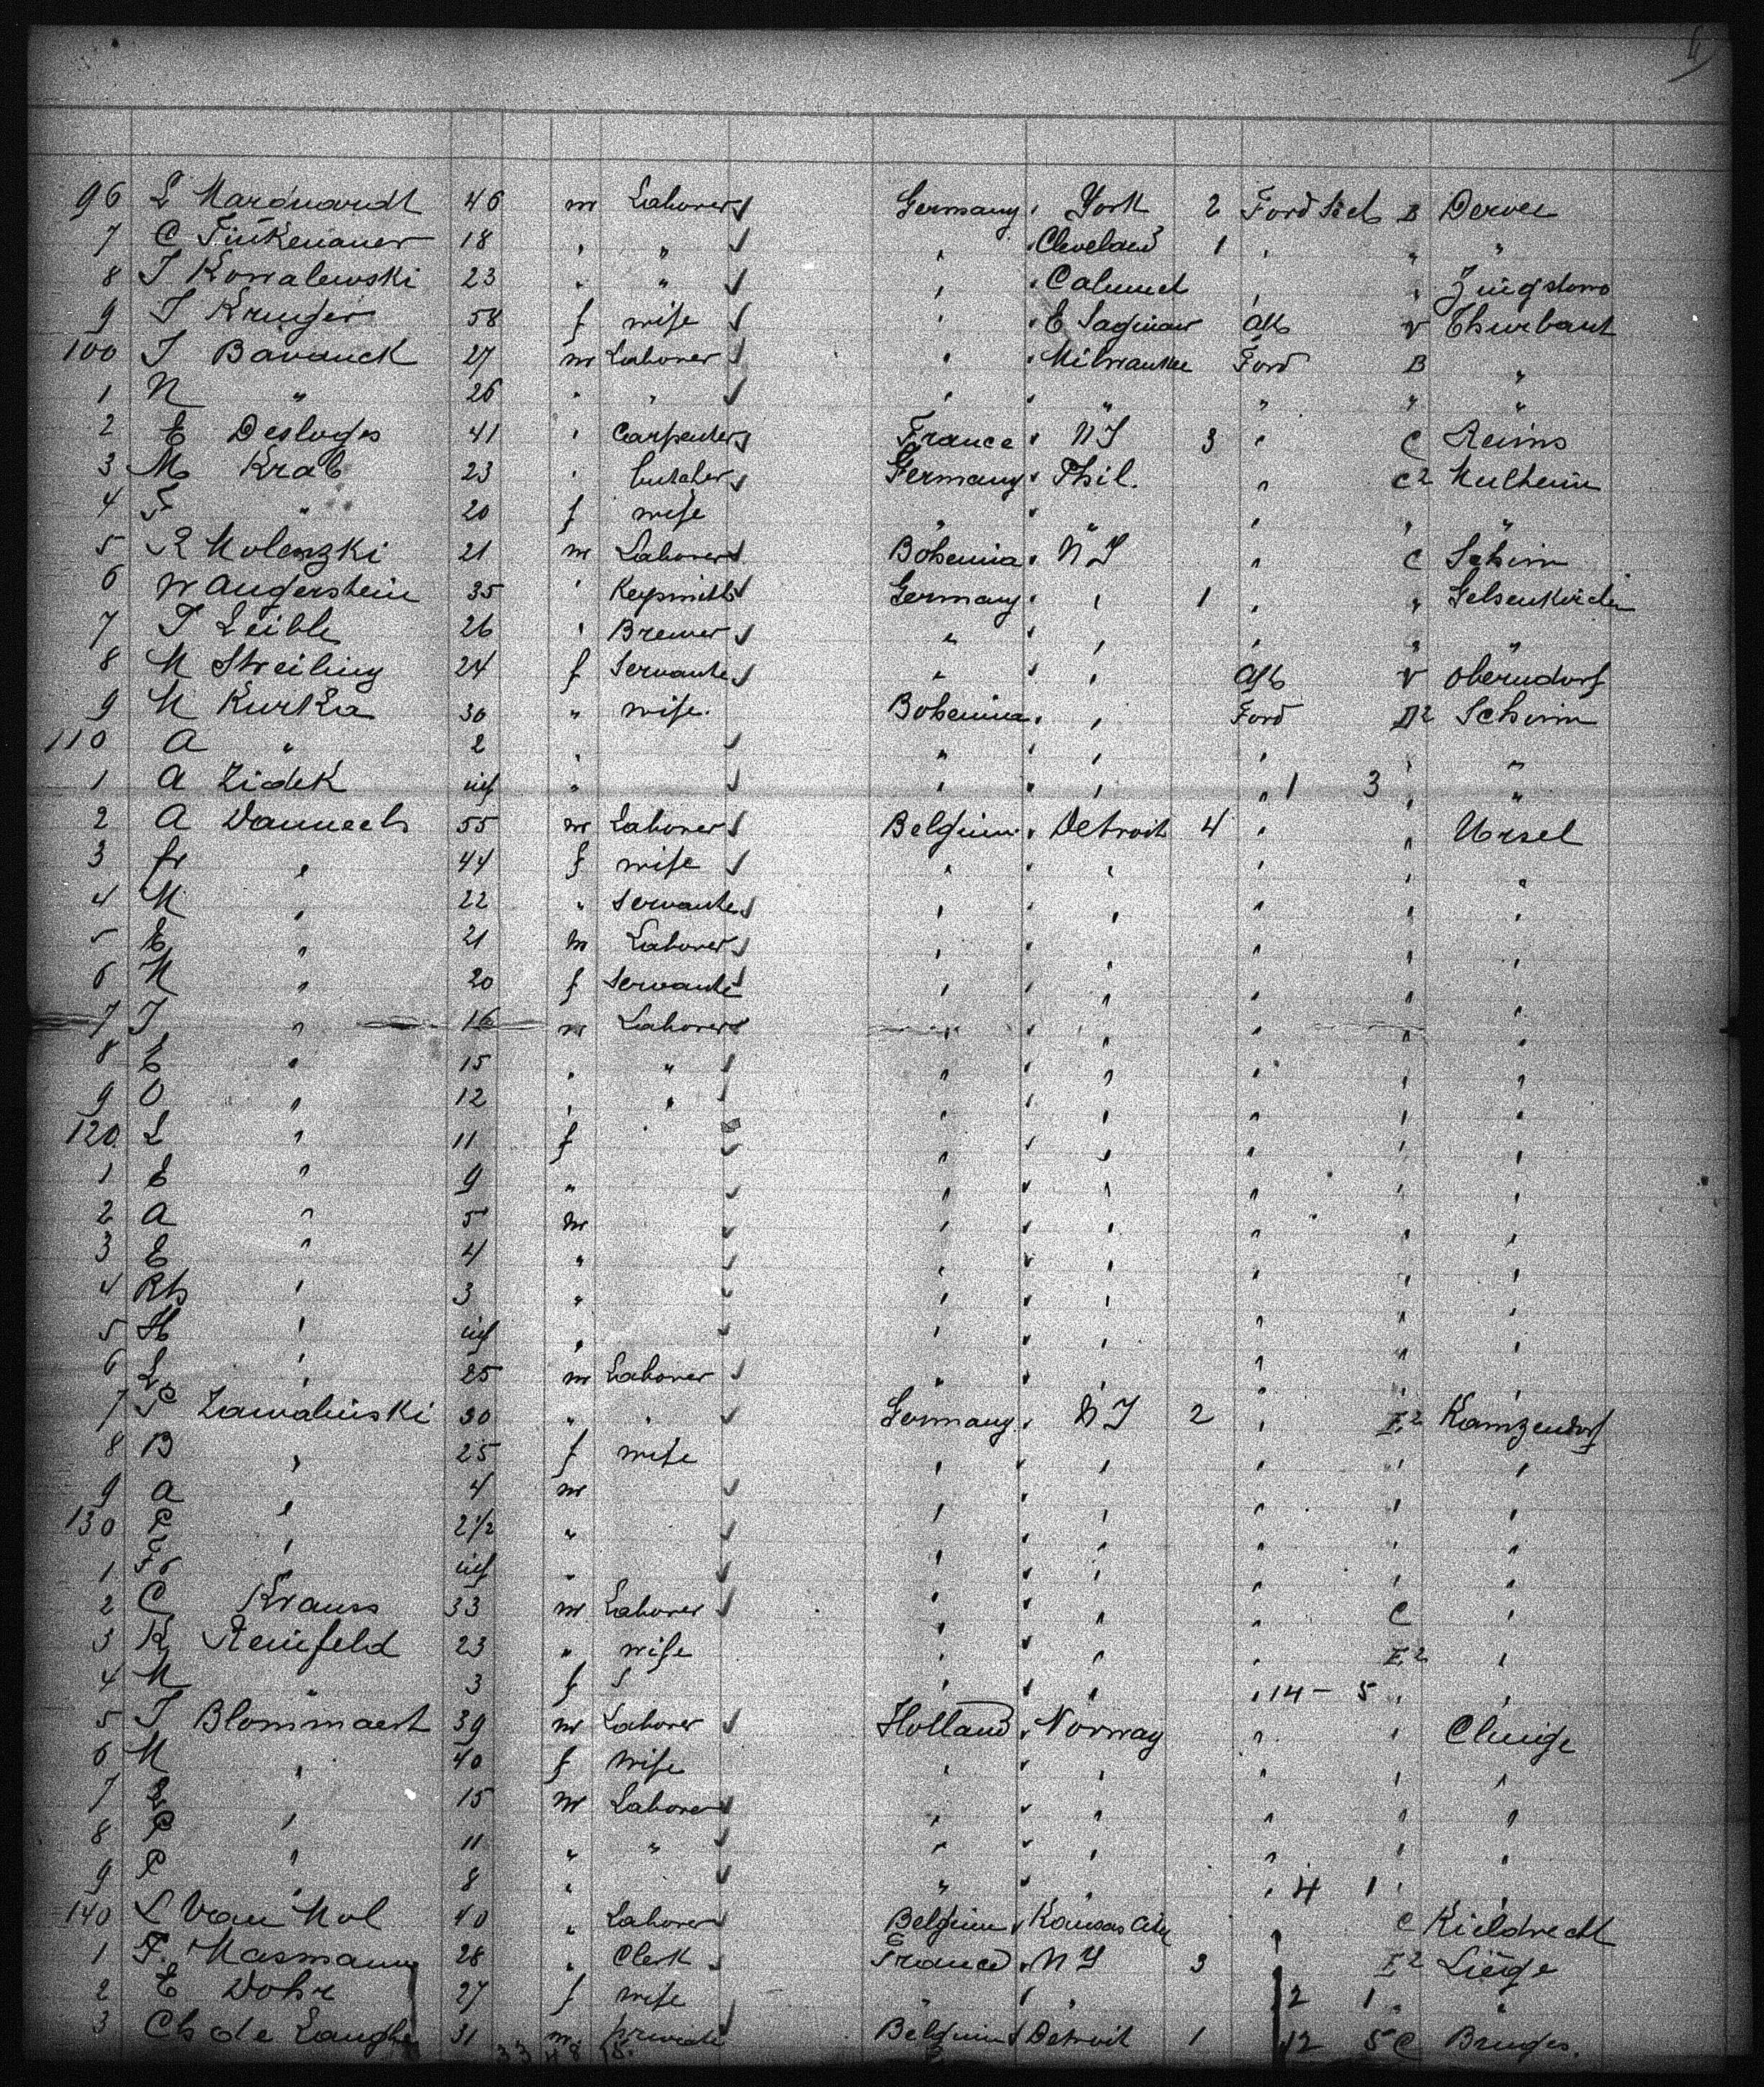 96 L Marquardt 46 m Laborer Germany York 2 Ford Deck B
7 C Finkenauer 18 " " " Cleveland 1 " " "
8 J Kowalewski 23 " " " Calumet " "
9 J Kruger 58 f wife " E Saginaw Aft v
100 J 27 m Laborer " Milwaukee Ford B "
1 N " 26 " " " " " " "
2 E Desloges 41 " Carpenter France NY 3 " C Reims
3 M Krab 23 " butcher Germany Phil. " C2 Mulheim
4 F " 20 f wife " " " " "
5 R Molenzki 21 m Laborer Bohemia NY " C
6 W Angerstein 35 " Germany " 1 " " Gelsenkirchen
7 J Leible 26 " Brewer " " " " "
8 M Streiling 24 f Servante " " Aft v Oberndorf
9 M Kurka 30 " wife. Bohemia " Ford D2
110 A " 2 " " " " " "
1 A Zidek inf " " " " 1 3 " "
2 A Danneels 55 m Laborer Belgium Detroit 4 " " Ursel
3 fr " 44 f wife " " " " "
4 M " 22 " Servante " " " " "
5 E " 21 m Laborer " " " " "
6 M " 20 f Servante " " " " "
7 J " 16 m Laborer " " " " "
8 E " 15 " " " " " " "
9 O " 12 " " " " " " "
120 L " 11 f " " " " "
1 E " 9 " " " " " "
2 A " 5 m " " " " "
3 E " 4 " " " " " "
4 " 3 " " " " " "
5 H " inf " " " " " "
6 L " 25 m Laborer " " " " "
7 P Zawalinski 30 " " Germany NY 2 " E2 Kamzendorf
8 B " 25 f wife " " " " "
9 A " 4 m " " " " "
130 P " 2 1/2 " " " " " "
1 Fr " inf " " " " " "
2 C Krauss 33 m Laborer " " " C "
3 K Reinfeld 23 " wife " " " E2 "
4 M " 3 f " " " 14 - 5 " "
5 J Blommaert 39 m Laborer Holland Norway " " Clinge
6 M " 40 f wife " " " " "
7 " 15 m Laborer " " " " "
8 P " 11 " " " " " " "
9 P " 8 " " " " 4 1 " "
140 L Van Mol 40 " Laborer Belgium Kansas City " C Kieldrecht
1 F. Masmann 28 " Clerk France NY 3 E2 Liège
2 E Dohr 27 f wife " " 2 1 " "
3 Ch de Laughe 31 m. private Belgium Detroit 1 12 5 C Bruges.